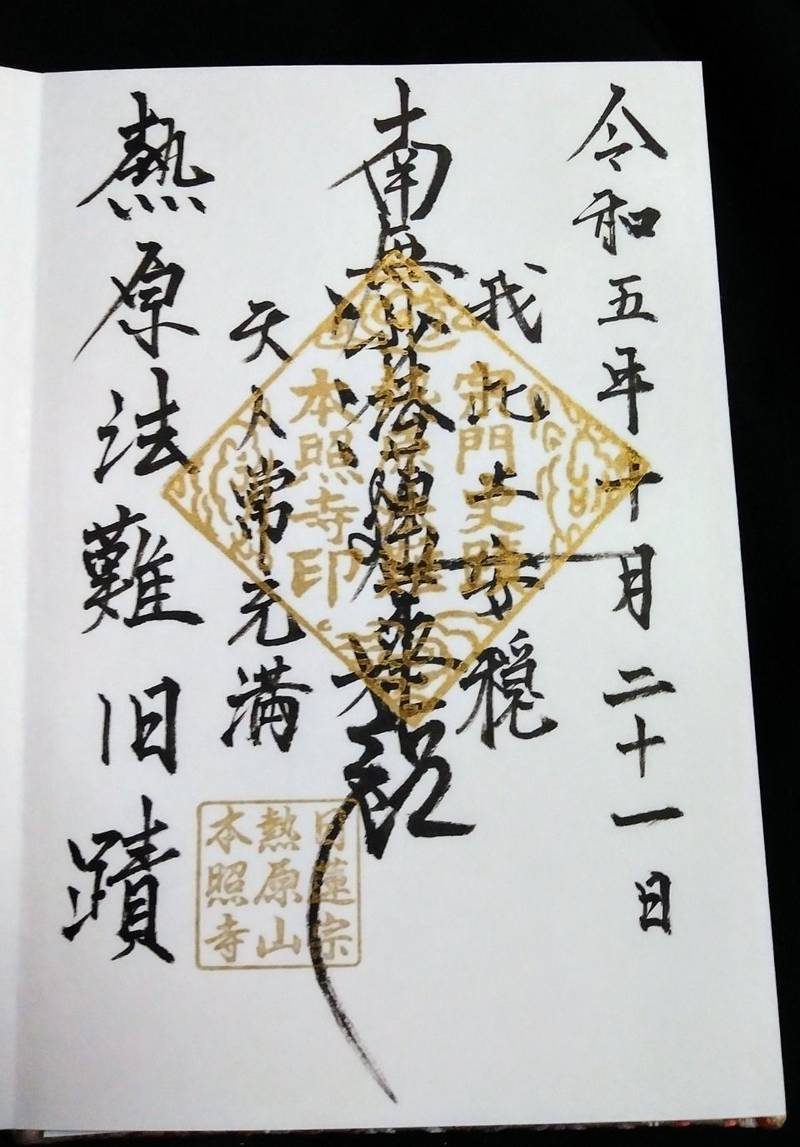 令和五年十月二十一日
我此土安穏
南無妙法蓮華経
天人常充満
熱原法難旧蹟
宗門史跡
熱原法難
本照寺印
日蓮宗
熱原山
本照寺